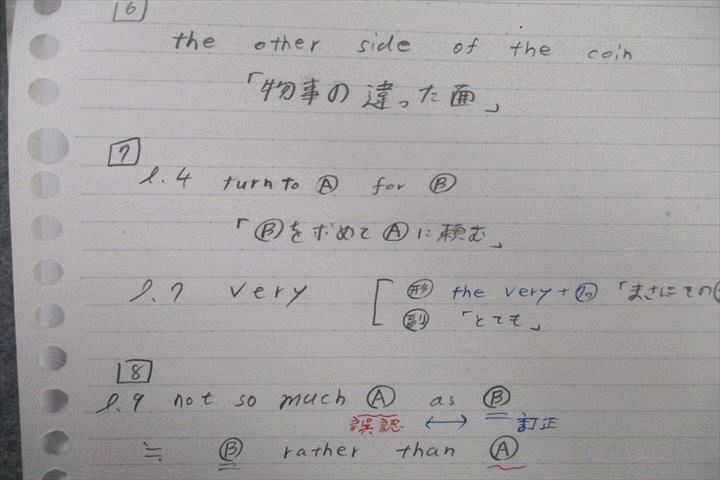 6
the other side of the coin
「物事の違った面」
7
l.4 turn to Ⓐ for Ⓑ
「Ⓑを求めてⒶに頼む」
l.7 very [ 形 the very + 名 「まさにその
副 「とても」
8
l.9 not so much Ⓐ as Ⓑ
誤認 ↔ 訂正
≒ Ⓑ rather than Ⓐ